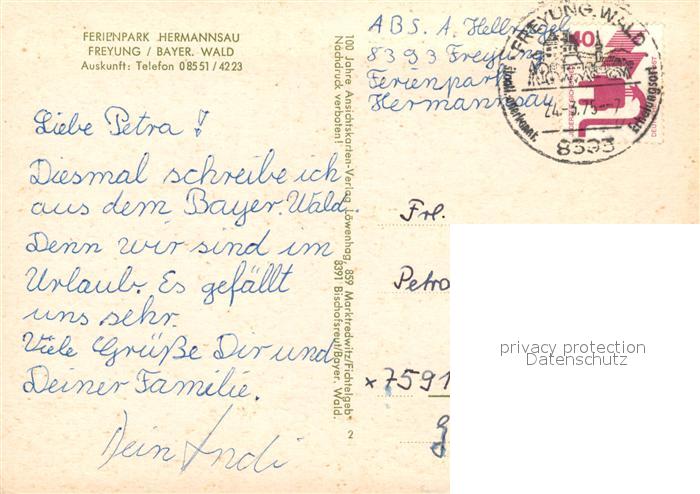 FERIENPARK HERMANNSAU
FREYUNG / BAYER. WALD
Auskunft: Telefon 08551/4223
Liebe Petra!
Diesmal schreibe ich
aus dem Bayer. Wald.
Denn wir sind im
Urlaub. Es gefällt
uns sehr.
Viele Grüße Dir und
Deiner Familie.
Dein Andi
100 Jahre Ansichtskarten-Verlag Löwenhag, 859 Marktredwitz/Fichtelgeb
Nachdruck verboten! 8391 Bischofsreut/Bayer. Wald.
2
ABS. A. Hellriegel
8393 Freyung
Ferienpark
Hermannsau
FREYUNG, WALD
staatl. anerkannt. Erholungsort
8393
40
Frl.
Petra
x7591
privacy protection
Datenschutz